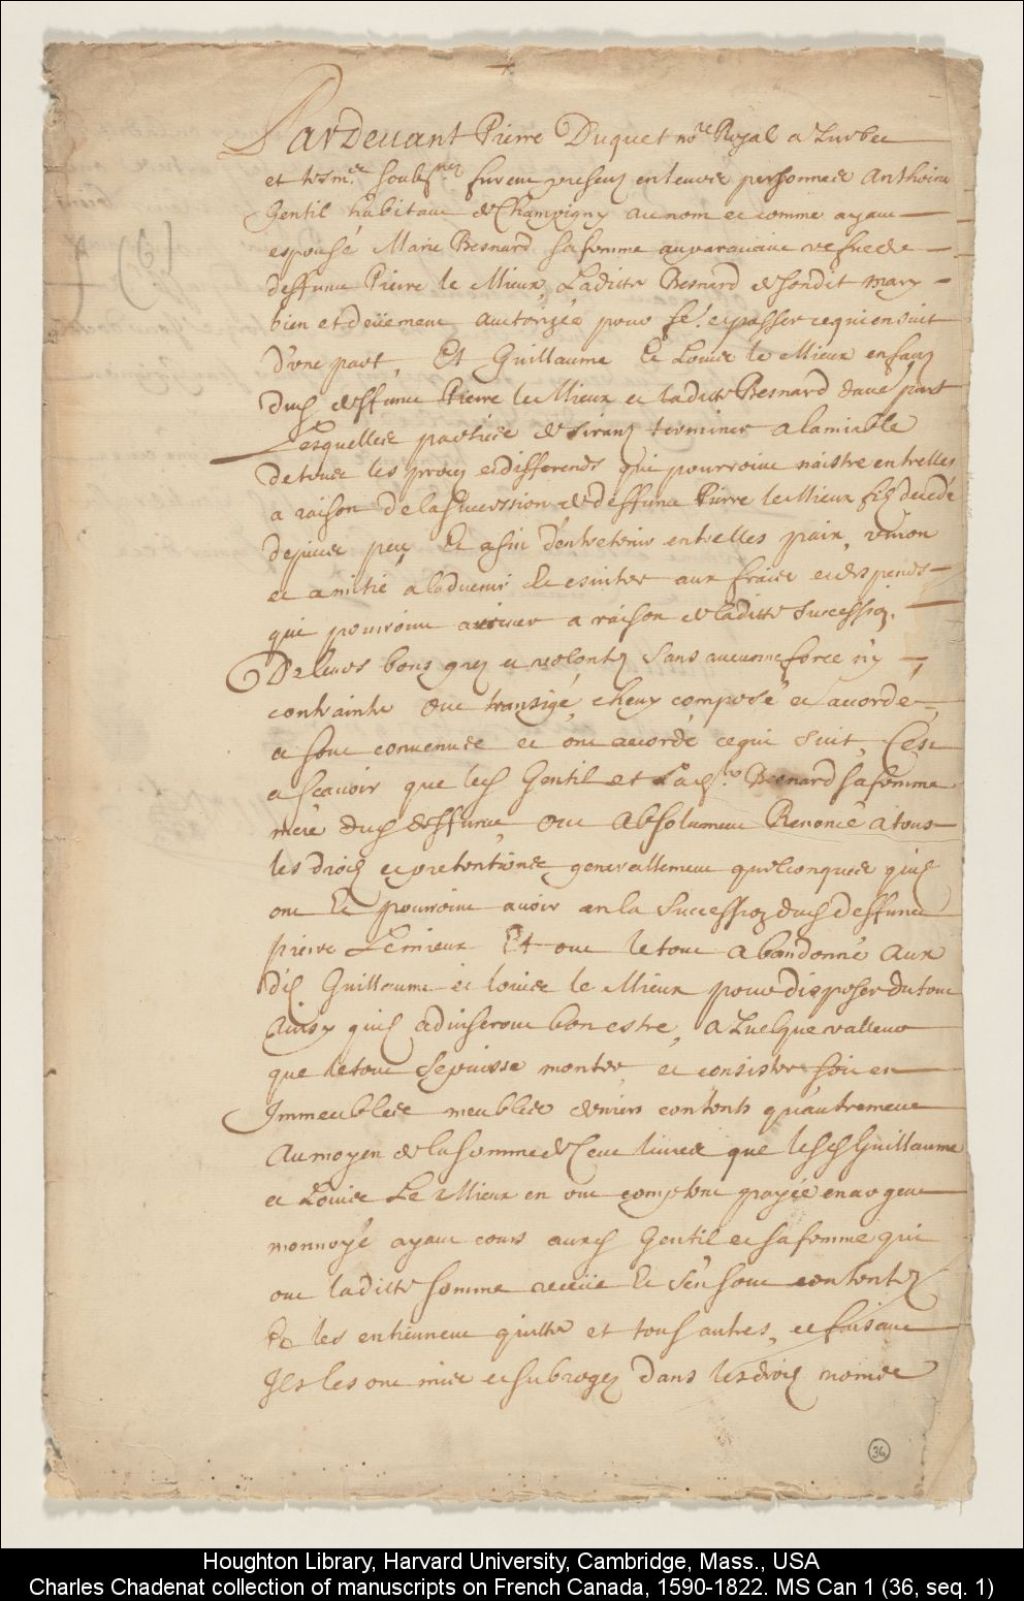 Pardeuant Pierre Duquet no.re Royal a Quebec
et tesm.s soubs.nez furent presens en leurs personnes Anthoine
Gentil habitant de Champigny au nom et comme ayant
espousé Marie Besnard sa femme auparauant vefue de
deffunt Pierre le Mieux, Laditte Besnard de sondit mary
bien et deüement auctorizée pour fe.e et passer ce qui ensuit
D'vne part, Et Guillaume Et Louis le Mieux enfans
dud deffunt Pierre le Mieux et laditte Besnard dautre part
Lesquelles parties desirans terminer a lamiable
de tous les proces et differends qui pourroient naistre entrelles
a raison de la Succession de deffunt Pierre le Mieux filz decedé
depuis peu, Et afin dentretenir entrelles paix, vnion
et amitié a laduenir Et esuiter aux fraies et despends
qui pourroient arriuer a raison de laditte Succession.
De leurs bons grez et volontez sans aucune force ny
contrainte ont transigé, cheuy, composé et accordé
et sont conuenus et ont accordé ce qui suit, Cest
a scauoir que led Gentil et lad. Besnard sa femme
mere dud deffunt, ont absolument Renoncé a tous
les droicts et pretentions generallement quelconques quils
ont Et pourroient auoir en la Succession dud deffunt
pierre Lemieux Et ont le tout abandonné aux
dits Guillaume et louis le Mieux pour disposer du tout
Ainsy quils aduiseront bon estre, a Quelque valleur
que le tout se puisse monter, et consister soit en
Immeubles meubles deniers contents quautrement
Au moyen de la somme de Cent liures que lesd Guillaume
et Louis Le Mieux en ont comptent payée en argent
monnoyé ayant cours ausd Gentil et sa femme qui
ont laditte somme receüe Et s'en sont contentez
Et les en tiennent quitte et tous autres, et faisant
Ils les ont mis et subrogez dans les droits noms
36
Houghton Library, Harvard University, Cambridge, Mass., USA
Charles Chadenat collection of manuscripts on French Canada, 1590-1822. MS Can 1 (36, seq. 1)